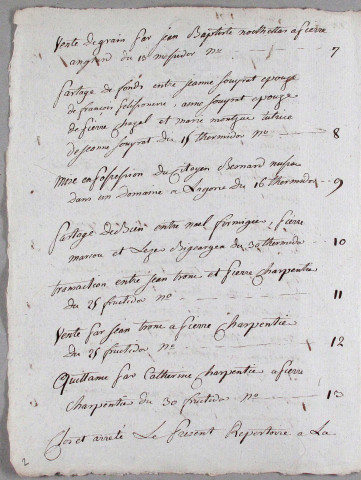 Vente de grain par jean Baptiste a pierre
du 10 messidor no 7
partage de fonds entre jeanne souyrat epouze
de françois , anne souyrat epouze
de pierre chazal et marie tutrice
de jeanne souyrat du 15 thermidor no 8
Mise en possession du Citoyen Bernard
dans un domaine a du 16 thermidor 9
partage de Bien entre , pierre
et du 30 thermidor 10
transaction entre jean tronc et pierre charpentie
du 25 fructidor no 11
Vente par jean tronc a pierre Charpentie
du 25 fructidor no 12
Quittance par Catherine Charpentie a pierre
Charpentie du 30 fructidor no 13
Clos et arreté Le present Repertoire a La
2